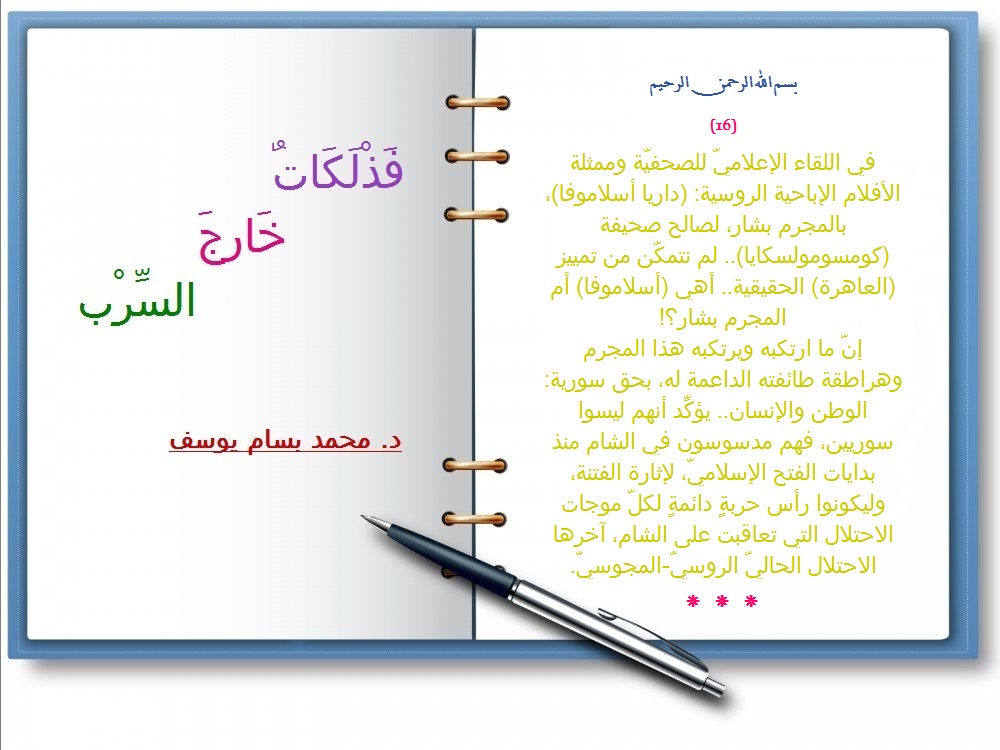 فَذْلَكَاتٌ
خَارجَ
السِّرْب
د. محمد بسام يوسف
بسم الله الرحمن الرحيم
(16)
في اللقاء الإعلاميّ للصحفيّة وممثلة
الأفلام الإباحية الروسية: (داريا أسلاموفا)،
بالمجرم بشار، لصالح صحيفة
(كومسومولسكايا).. لم نتمكّن من تمييز
(العاهرة) الحقيقية.. أهي (أسلاموفا) أم
المجرم بشار؟!
إنّ ما ارتكبه ويرتكبه هذا المجرم
وهراطقة طائفته الداعمة له، بحق سورية:
الوطن والإنسان.. يؤكِّد أنهم ليسوا
سوريين، فهم مدسوسون في الشام منذ
بدايات الفتح الإسلاميّ، لإثارة الفتنة،
وليكونوا رأس حربةٍ دائمةٍ لكلّ موجات
الاحتلال التي تعاقبت على الشام، آخرها
الاحتلال الحاليّ الروسيّ-المجوسيّ.
* * *